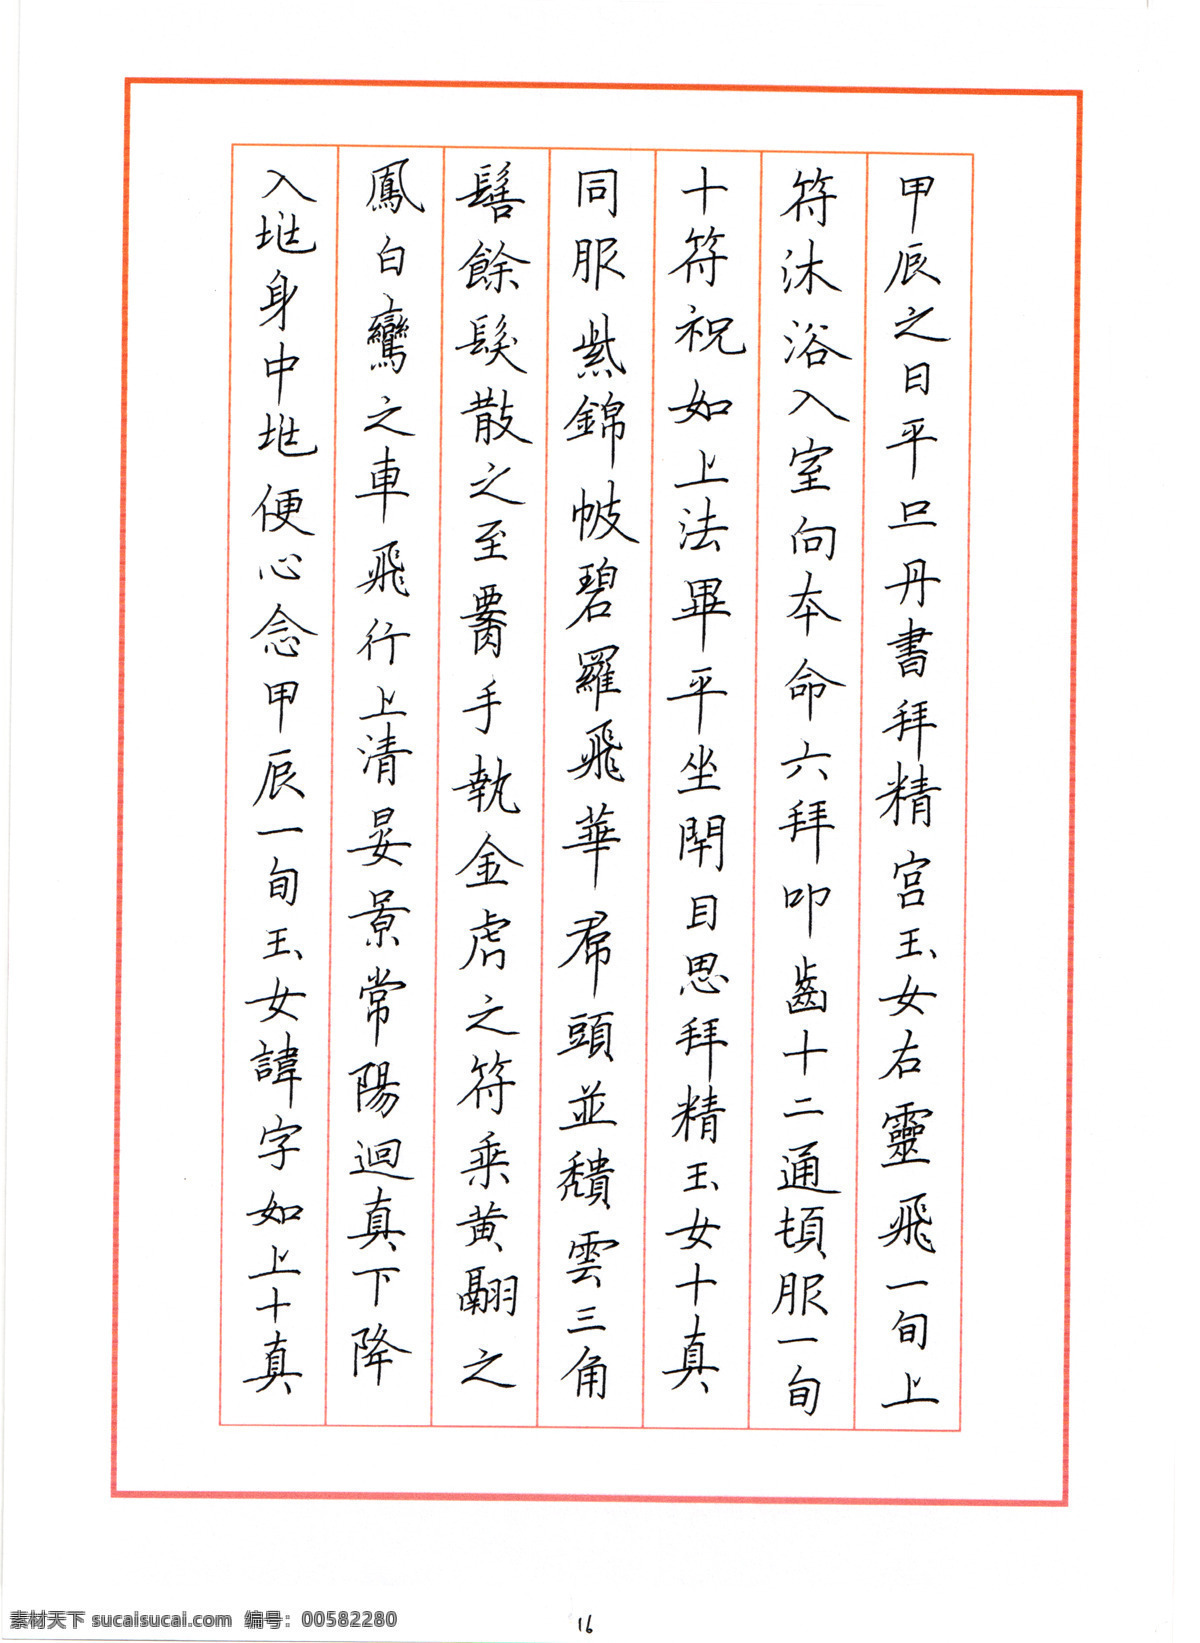 甲辰之日平旦丹書拜精宮玉女右靈飛一旬上
符沐浴入室向本命六拜叩齒十二通頓服一旬
十符祝如上法畢平坐閉目思拜精玉女十真
同服紫錦帔碧羅飛華帬頭並穨雲三角
髻餘髮散之至腰手執金虎之符乘黃翮之
鳳白鸞之車飛行上清晏景常陽迴真下降
入兆身中兆便心念甲辰一旬玉女諱字如上十真
素材天下 sucaisucai.com 编号：00582280
16